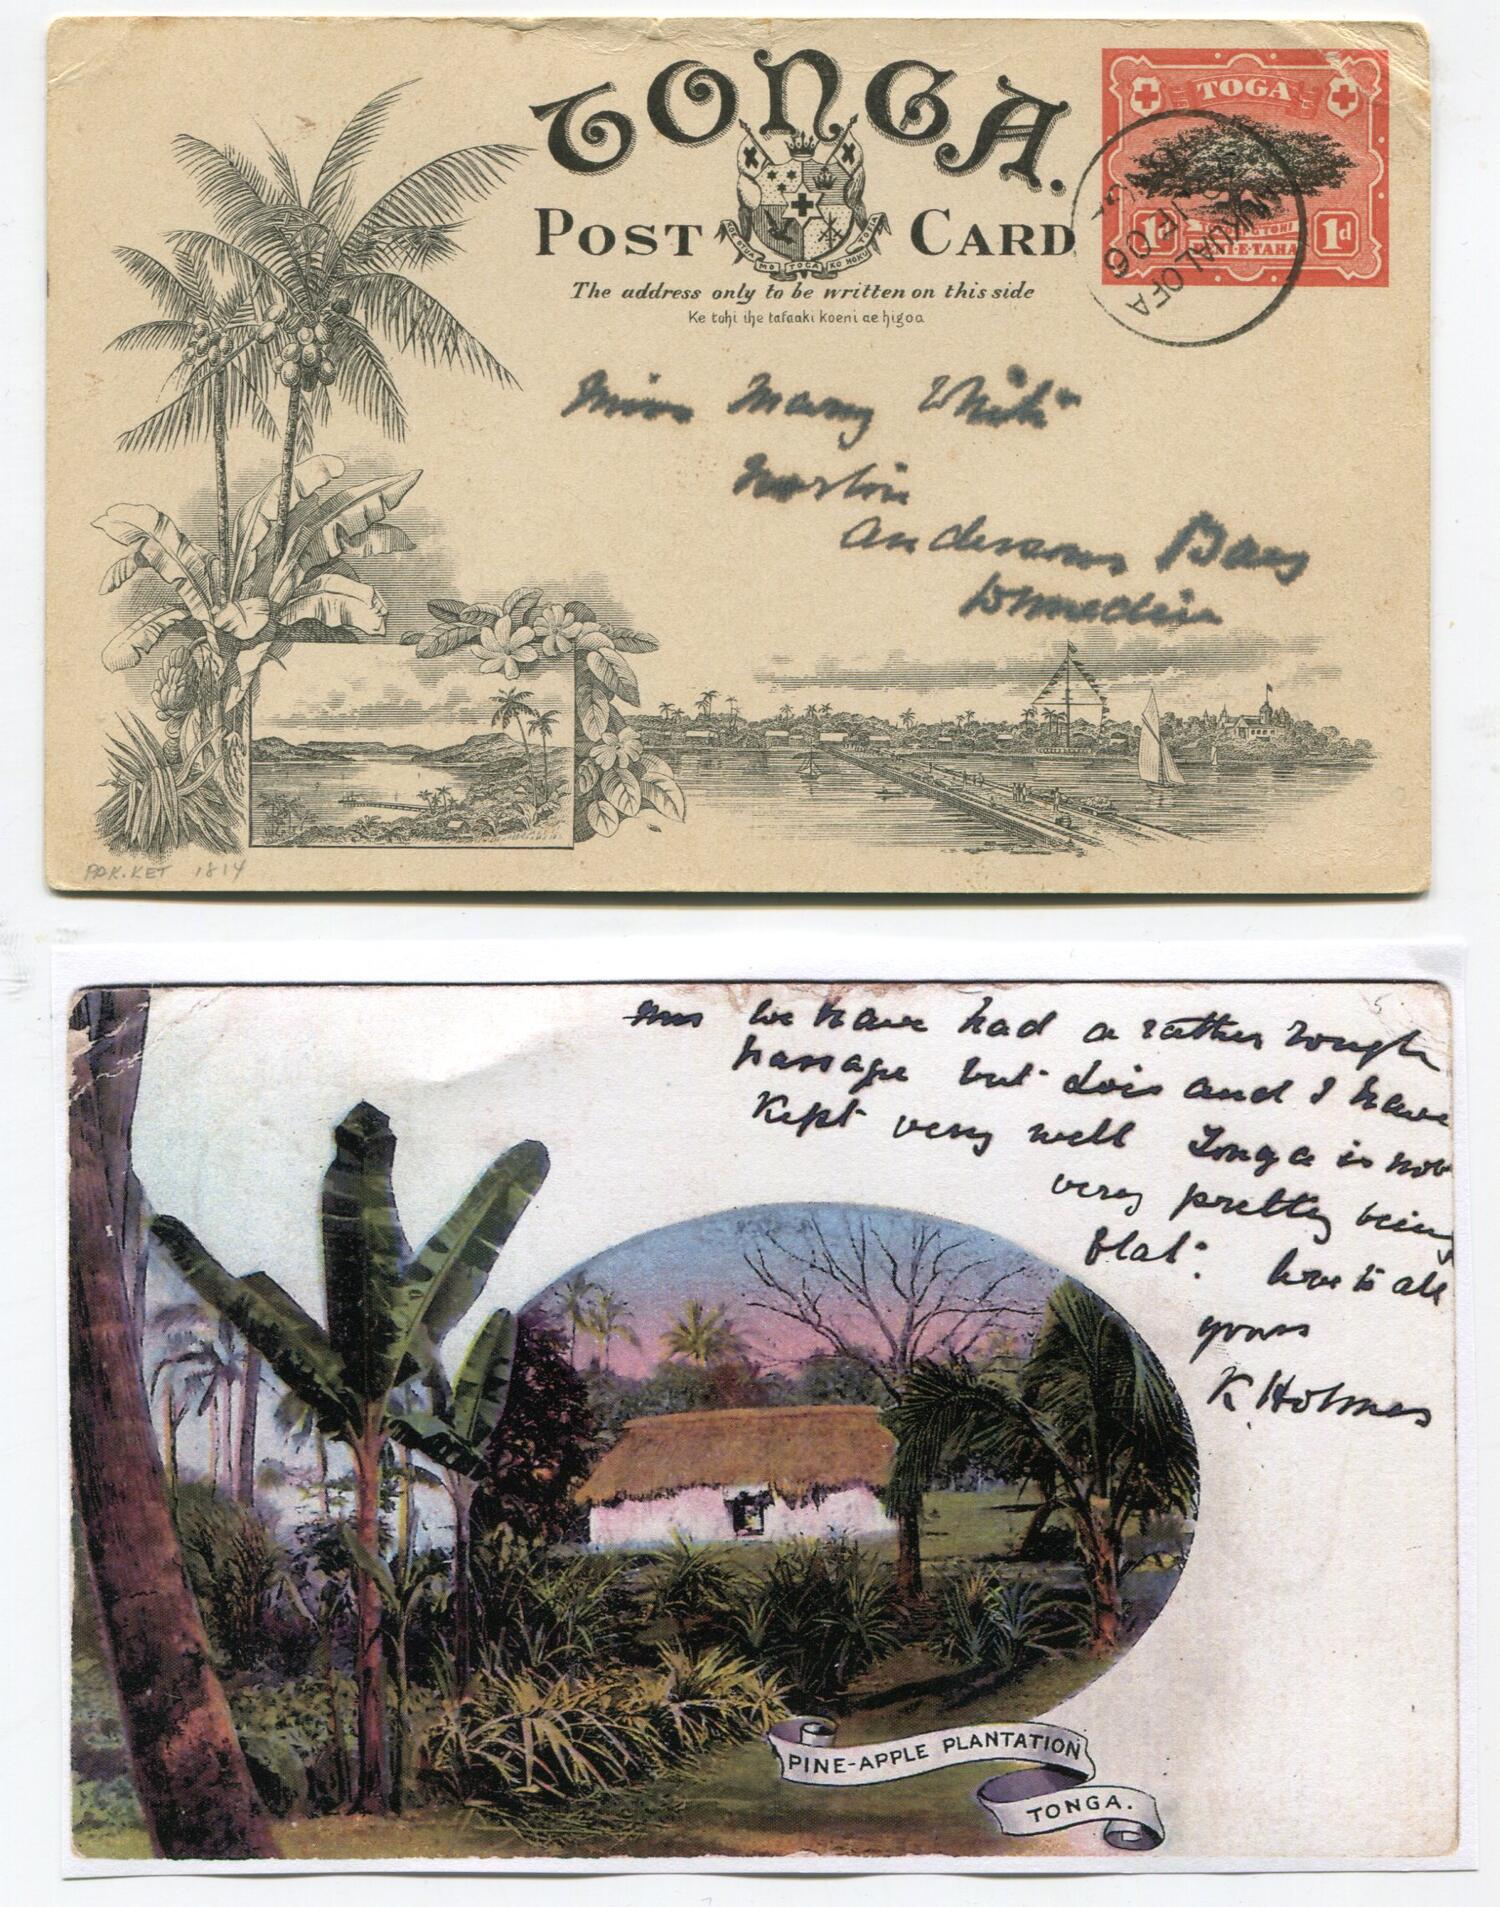 TONGA.
POST CARD
KOE OTUA MO TOGA KO HOKU TOFIA
The address only to be written on this side
Ke tohi ihe tafaaki koeni ae higoa
TOGA
1d 1d
NUKUALOFA
06
Miss Mary White
Andersons Bay
Dunedin
PAK.KET 1814
We have had a rather rough
passage but Lois and I have
kept very well Tonga is not
very pretty being
flat. love to all
yours
K Holmes
PINE-APPLE PLANTATION
TONGA.